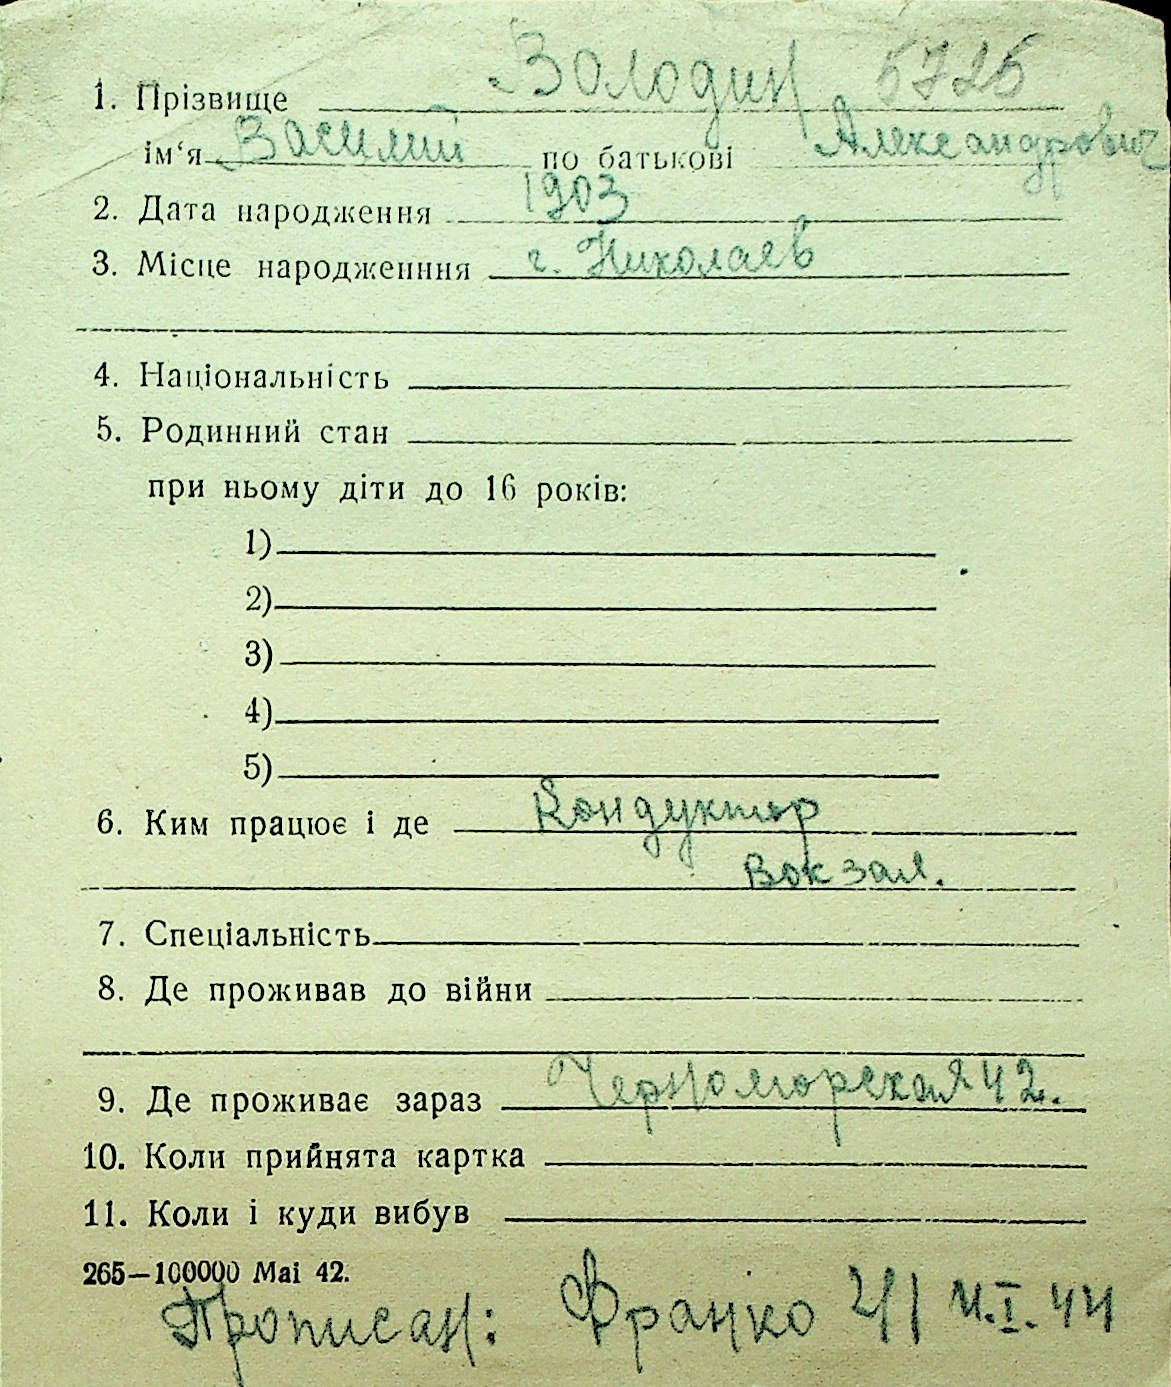 1. Прізвище Володин 5725
ім‘я Василий по батькові Александрович
2. Дата народження 1903
3. Місце народженння г. Николаев
4. Національність
5. Родинний стан
при ньому діти до 16 років:
1)
2)
3)
4)
5)
6. Ким працює і де Кондуктор
Вокзал.
7. Спеціальність
8. Де проживав до війни
9. Де проживає зараз Черноморская 42.
10. Коли прийнята картка
11. Коли і куди вибув
265—100000 Mai 42.
Прописан: Франко 21 4.I.44